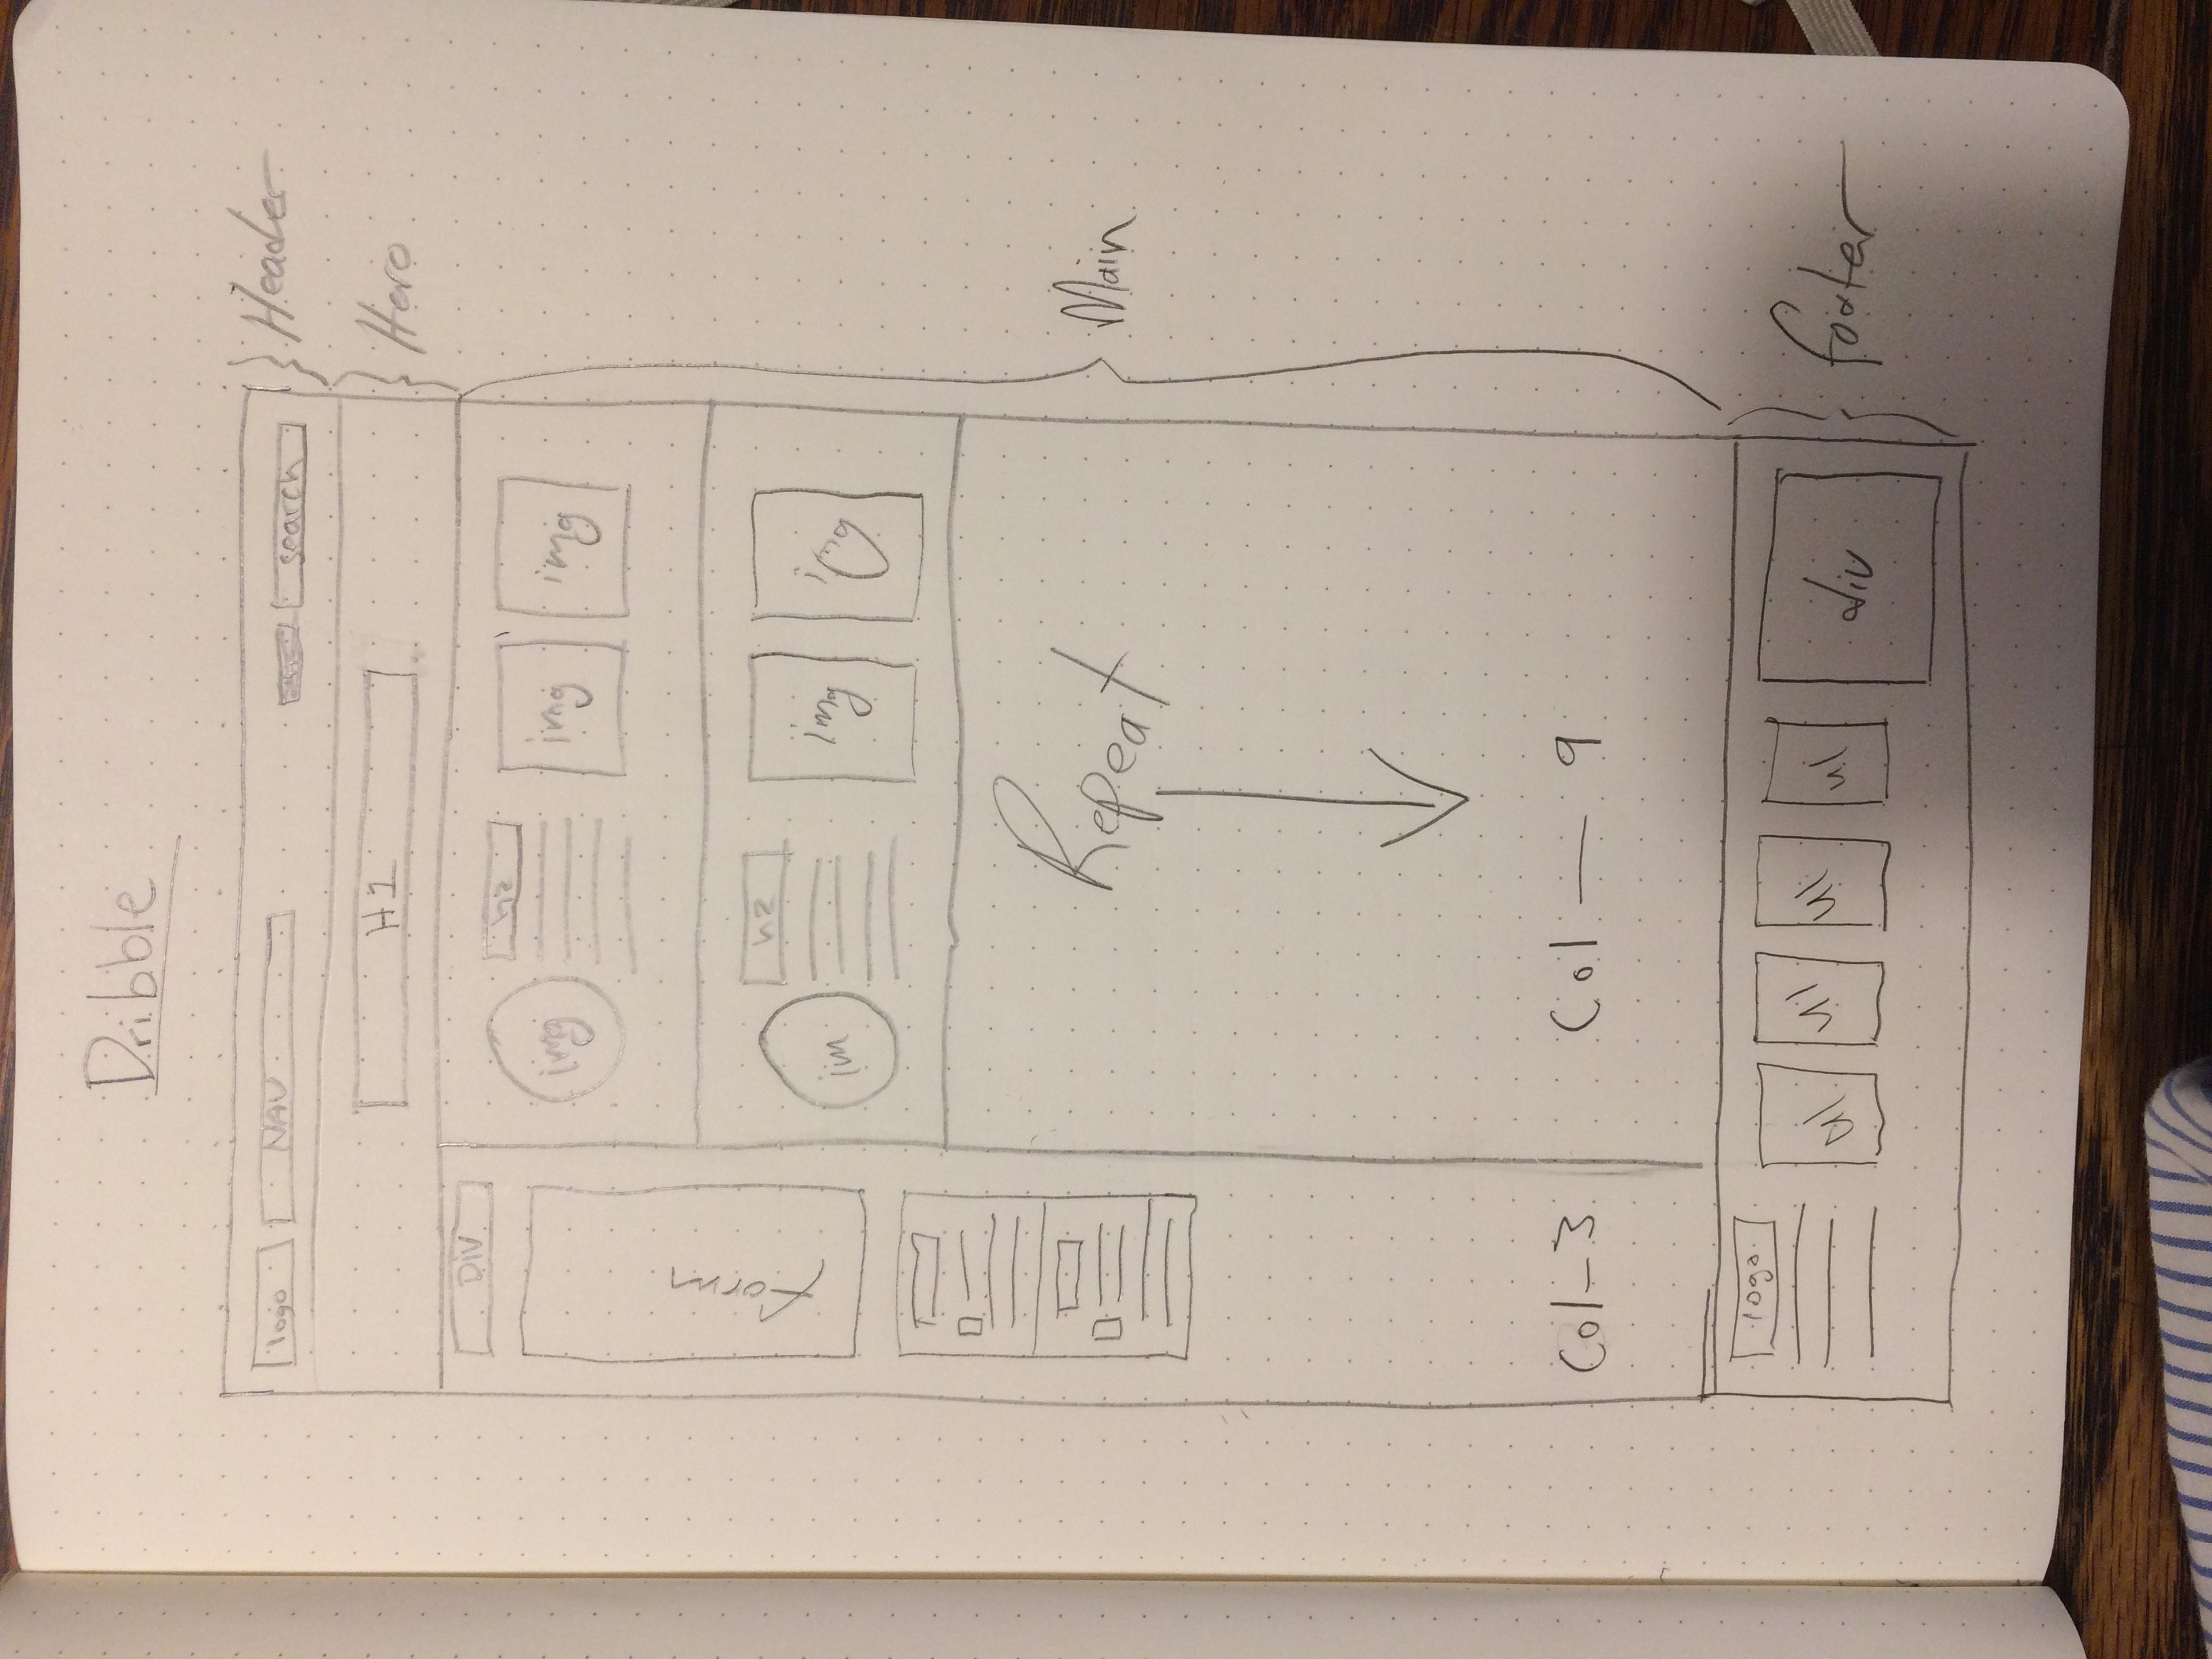 Dribble
logo NAV search Header
H1 Hero
DIV
img h2 img img
form
h2
im img img
Repeat
Main
Col-3 Col — 9
logo
ul ul ul ul div footer